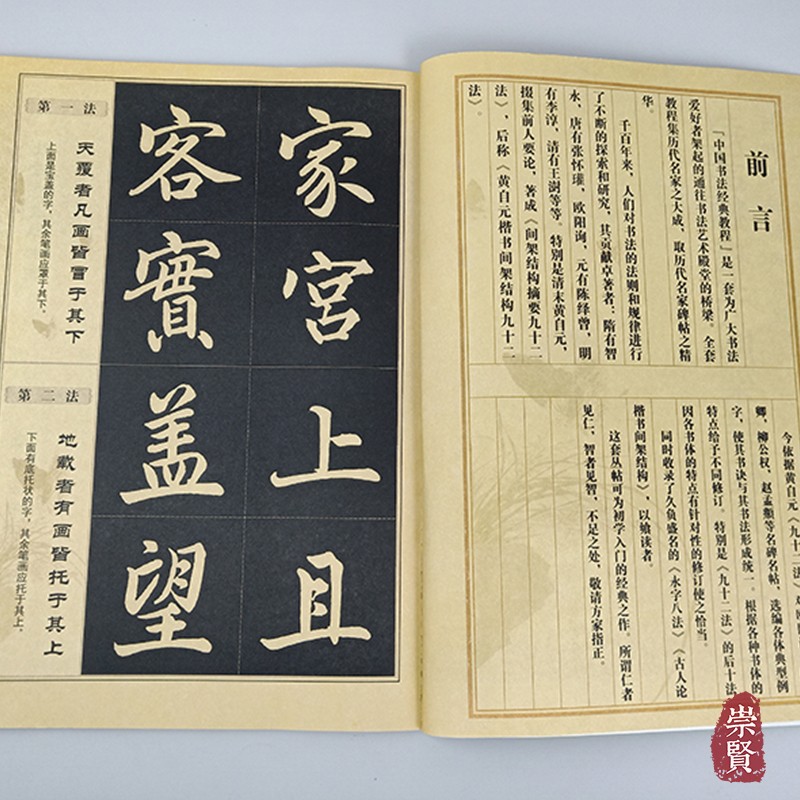 前言
『中国书法经典教程』是一套为广大书法
爱好者架起的通往书法艺术殿堂的桥梁。全套
教程集历代名家之大成，取历代名家碑帖之精
华。
千百年来，人们对书法的法则和规律进行
了不断的探索和研究，其贡献卓著者：隋有智
永、唐有张怀瓘，欧阳询，元有陈绎曾，明
有李淳，清有王澍等等。特别是清末黄自元，
掇集前人要论，著成《间架结构摘要九十二
法》，后称《黄自元楷书间架结构九十二
法》。
今依据黄自元《九十二法》
卿，柳公权、赵孟頫等名碑名帖，选编各体典型例
字，使其书诀与其书法形成统一。根据各种书体的
特点给予不同修订。特别是《九十二法》的后十法
因各书体的特点有针对性的修订使之恰当。
同时收录了久负盛名的《永字八法》《古人论
楷书间架结构》，以飨读者。
这套丛帖可为初学入门的经典之作。所谓仁者
见仁，智者见智，不足之处，敬请方家指正。
家宫上且
客實盖望
第一法
天覆者凡画皆冒于其下
上面是宝盖的字，其余笔画应罩于其下。
第二法
地载者有画皆托于其上
下面有底托状的字，其余笔画应托于其上。
崇賢